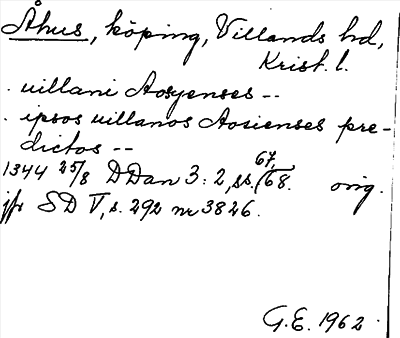 Åhus, köping, Villands hd,
Krist. l.
. uillani Aosyenses --
. ipsos uillanos Aosienses pre-
dictos --
1344 25/8 DDan 3:2, ss. 67, 68. orig.
jfr SD V, s. 292 nr 3826.
G.E. 1962.